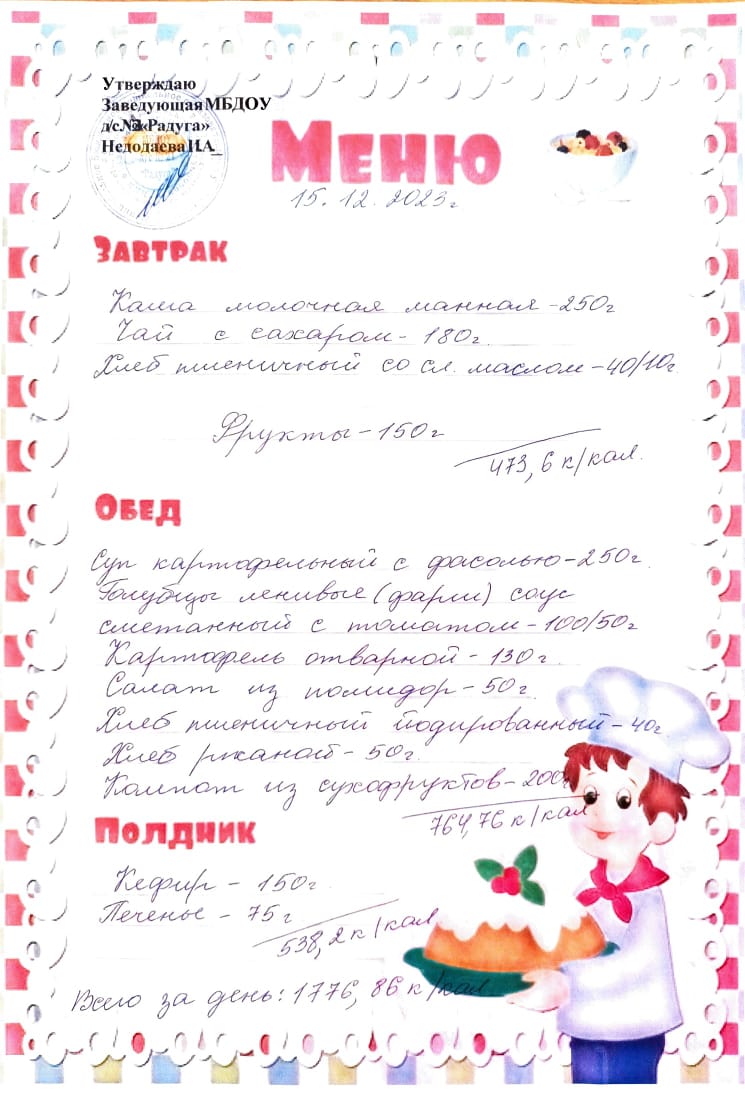 Утверждаю
Заведующая МБДОУ
д/с №2 «Радуга»
Недодаева И.А_
Меню
15. 12. 2023г
Завтрак
Каша молочная манная - 250г
Чай с сахаром - 180г.
Хлеб пшеничный со сл. маслом - 40/10г.
Фрукты - 150г
473,6 к/кал.
Обед
Суп картофельный с фасолью - 250г.
Голубцы ленивые (фарш) соус
сметанный с томатом - 100/50г
Картофель отварной - 130г.
Салат из помидор - 50г.
Хлеб пшеничный йодированный - 40г.
Хлеб ржаной - 50г.
Компот из сухофруктов - 200г
764,76 к/кал
Полдник
Кефир - 150г
Печенье - 75г
538,2 к/кал
Всего за день: 1776, 86 к/кал